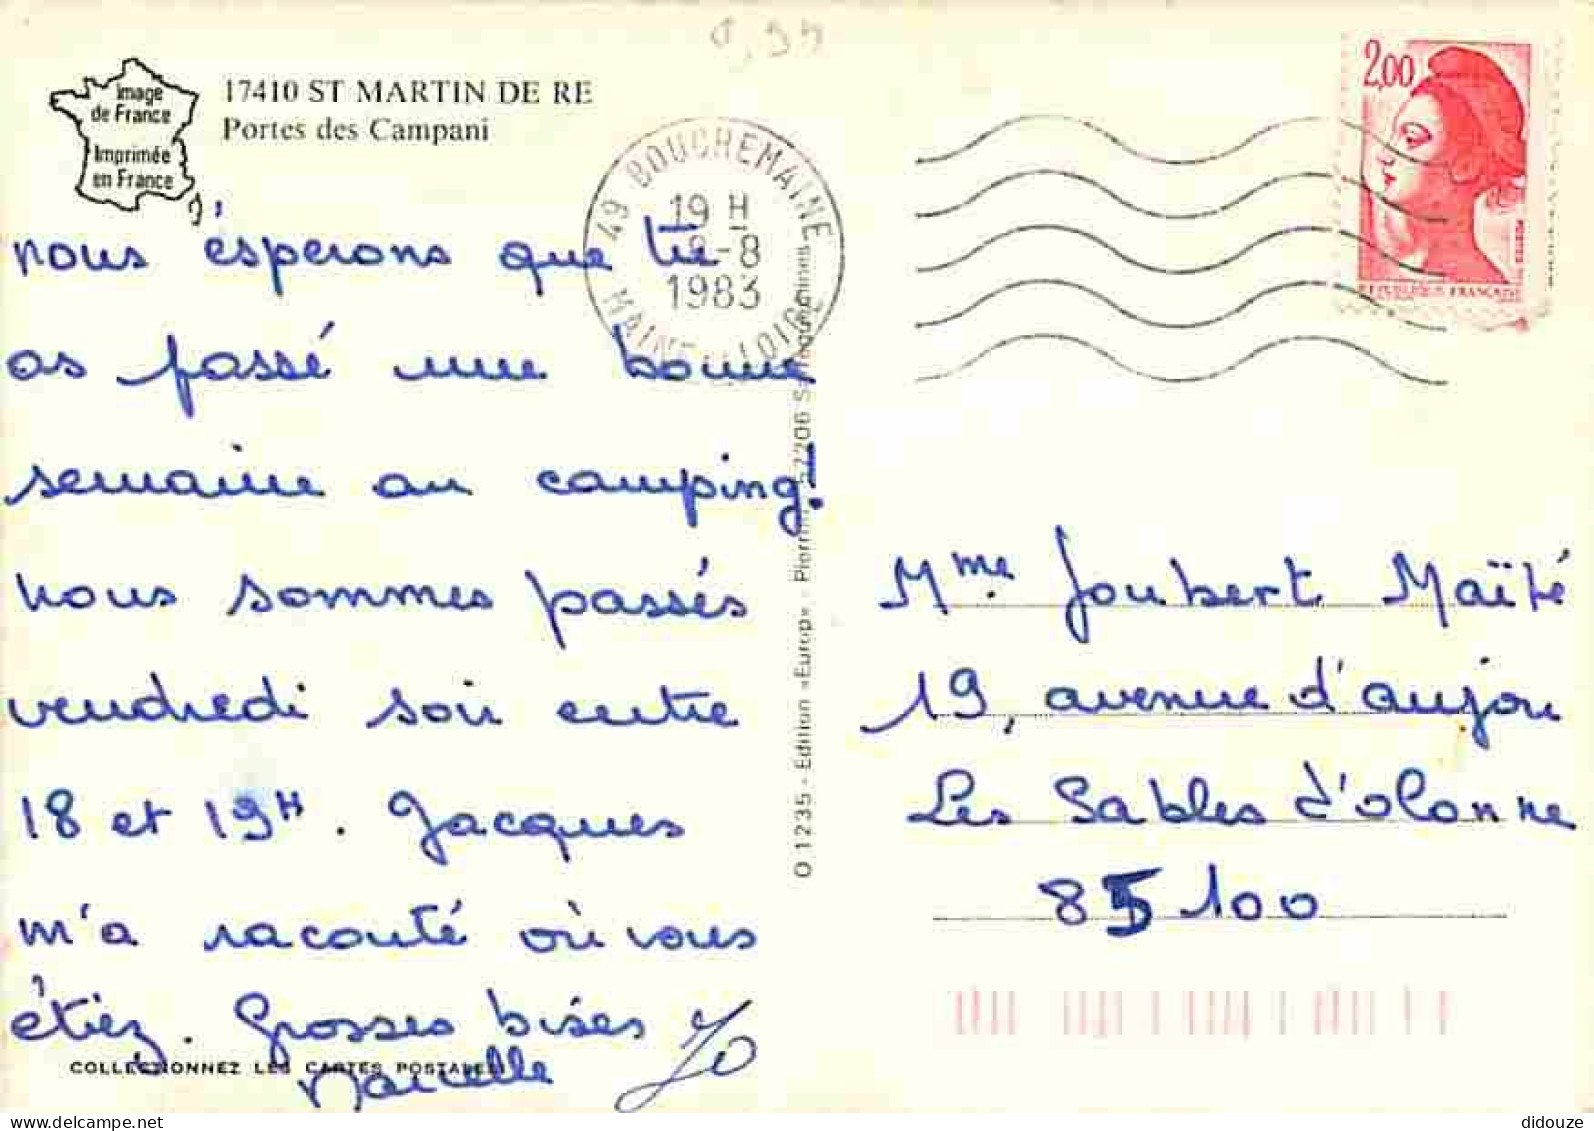 Image
de France
Imprimée
en France
17410 ST MARTIN DE RE
Portes des Campani
49 BOUCHEMAINE
19 H
8-8
1983
MAINE ET LOIRE
2,00
REPUBLIQUE FRANÇAISE
nous éspérons que tu
as passé une bonne
semaine au camping!
nous sommes passés
vendredi soir entre
18 et 19H. Jacques
m'a raconté où vous
étiez. Grosses bises
Marcelle Jo
COLLECTIONNEZ LES CARTES POSTALES
O 1235 - Edition «Europ» - Pierron 57206 Sarreguemines
Mme. Joubert Maïté
19, avenue d'anjou
Les Sables d'olonne
85 100
didouze